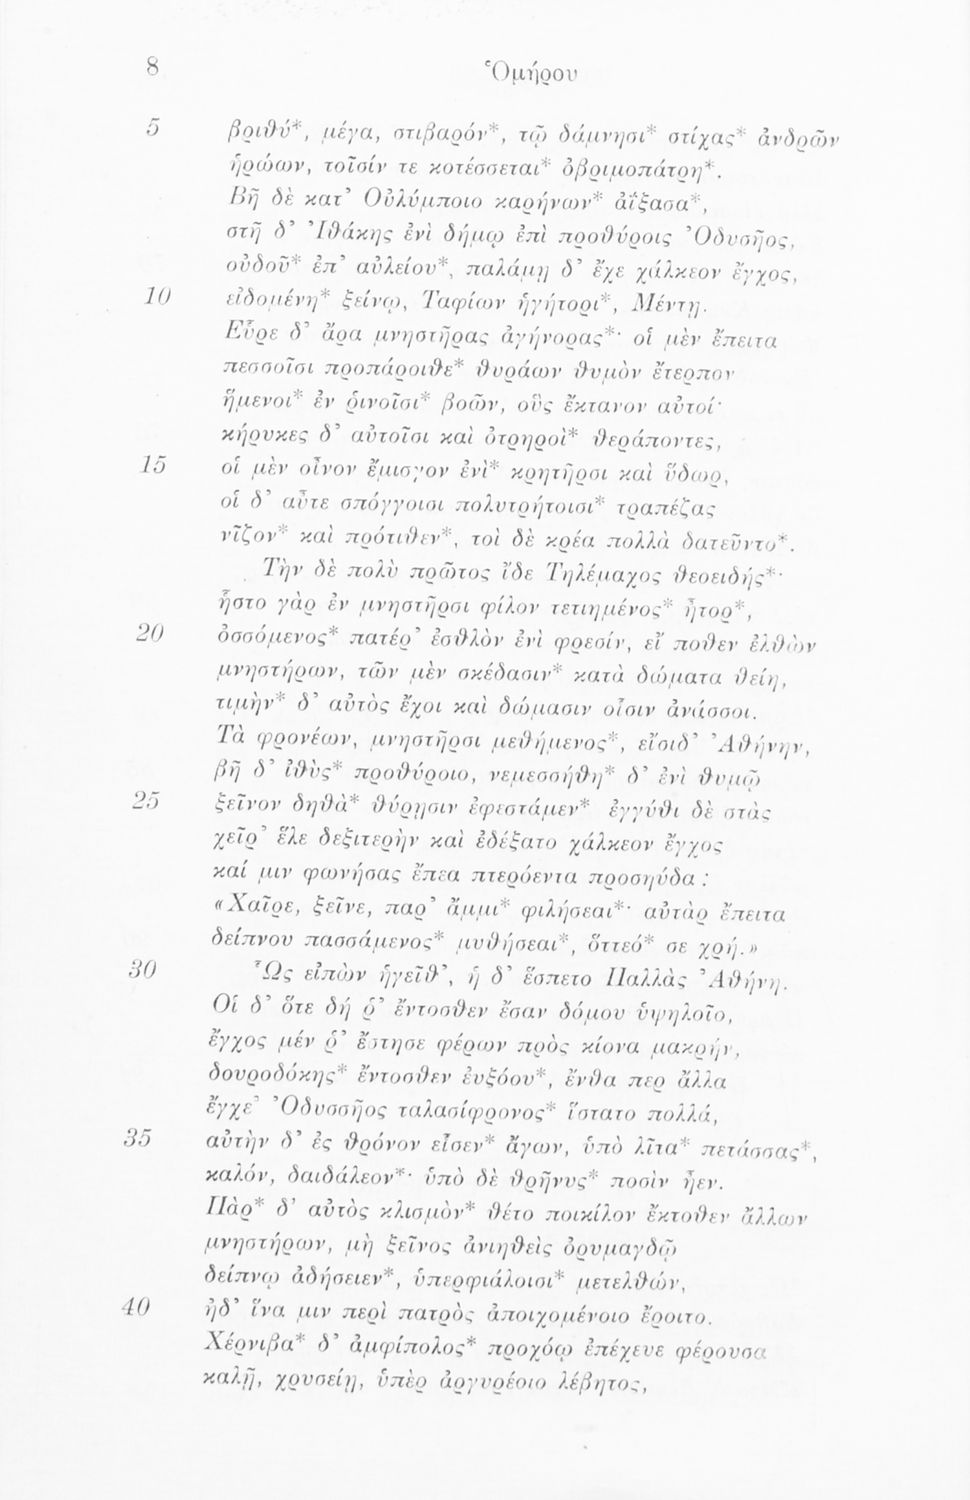 8
Ὁμήρου
5 βριθύ*, μέγα, στιβαρόν*, τῷ δάμνησι* στίχας* ἀνδρῶν
ἡρώων, τοῖσίν τε κοτέσσεται* ὀβριμοπάτρη*.
Βῆ δὲ κατ’ Οὐλύμποιο καρήνων* ἀΐξασα*,
στῆ δ’ Ἰθάκης ἐνὶ δήμῳ ἐπὶ προθύροις Ὀδυσῆος,
οὐδοῦ* ἐπ’ αὐλείου*, παλάμῃ δ’ ἔχε χάλκεον ἔγχος,
10 εἰδομένη* ξείνῳ, Ταφίων ἡγήτορι*, Μέντῃ.
Εὗρε δ’ ἄρα μνηστῆρας ἀγήνορας*· οἱ μὲν ἔπειτα
πεσσοῖσι προπάροιθε* θυράων θυμὸν ἔτερπον
ἥμενοι* ἐν ῥινοῖσι* βοῶν, οὓς ἔκτανον αὐτοί·
κήρυκες δ’ αὐτοῖσι καὶ ὀτρηροὶ* θεράποντες,
15 οἱ μὲν οἶνον ἔμισγον ἐνὶ* κρητῆρσι καὶ ὕδωρ,
οἱ δ’ αὖτε σπόγγοισι πολυτρήτοισι* τραπέζας
νῖζον* καὶ πρότιθεν*, τοὶ δὲ κρέα πολλὰ δατεῦντο*.
Τὴν δὲ πολὺ πρῶτος ἴδε Τηλέμαχος θεοειδής*·
ἧστο γὰρ ἐν μνηστῆρσι φίλον τετιημένος* ἦτορ*,
20 ὀσσόμενος* πατέρ’ ἐσθλὸν ἐνὶ φρεσίν, εἴ ποθεν ἐλθὼν
μνηστήρων, τῶν μὲν σκέδασιν* κατὰ δώματα θείη,
τιμὴν* δ’ αὐτὸς ἔχοι καὶ δώμασιν οἷσιν ἀνάσσοι.
Τὰ φρονέων, μνηστῆρσι μεθήμενος*, εἴσιδ’ Ἀθήνην,
βῆ δ’ ἰθὺς* προθύροιο, νεμεσσήθη* δ’ ἐνὶ θυμῷ
25 ξεῖνον δηθὰ* θύρῃσιν ἐφεστάμεν* ἐγγύθι δὲ στὰς
χεῖρ’ ἕλε δεξιτερὴν καὶ ἐδέξατο χάλκεον ἔγχος
καί μιν φωνήσας ἔπεα πτερόεντα προσηύδα :
«Χαῖρε, ξεῖνε, παρ’ ἄμμι* φιλήσεαι*· αὐτὰρ ἔπειτα
δείπνου πασσάμενος* μυθήσεαι*, ὅττεό* σε χρή.»
30 Ὣς εἰπὼν ἡγεῖθ’, ἡ δ’ ἕσπετο Παλλὰς Ἀθήνη.
Οἱ δ’ ὅτε δή ῥ’ ἔντοσθεν ἔσαν δόμου ὑψηλοῖο,
ἔγχος μέν ῥ’ ἔστησε φέρων πρὸς κίονα μακρήν,
δουροδόκης* ἔντοσθεν ἐυξόου*, ἔνθα περ ἄλλα
ἔγχε’ Ὀδυσσῆος ταλασίφρονος* ἵστατο πολλά,
35 αὐτὴν δ’ ἐς θρόνον εἷσεν* ἄγων, ὑπὸ λῖτα* πετάσσας*,
καλόν, δαιδάλεον*· ὑπὸ δὲ θρῆνυς* ποσὶν ἦεν.
Πὰρ* δ’ αὐτὸς κλισμὸν* θέτο ποικίλον ἔκτοθεν ἄλλων
μνηστήρων, μὴ ξεῖνος ἀνιηθεὶς ὀρυμαγδῷ
δείπνῳ ἀδήσειεν*, ὑπερφιάλοισι* μετελθών,
40 ἠδ’ ἵνα μιν περὶ πατρὸς ἀποιχομένοιο ἔροιτο.
Χέρνιβα* δ’ ἀμφίπολος* προχόῳ ἐπέχευε φέρουσα
καλῇ, χρυσείῃ, ὑπὲρ ἀργυρέοιο λέβητος,